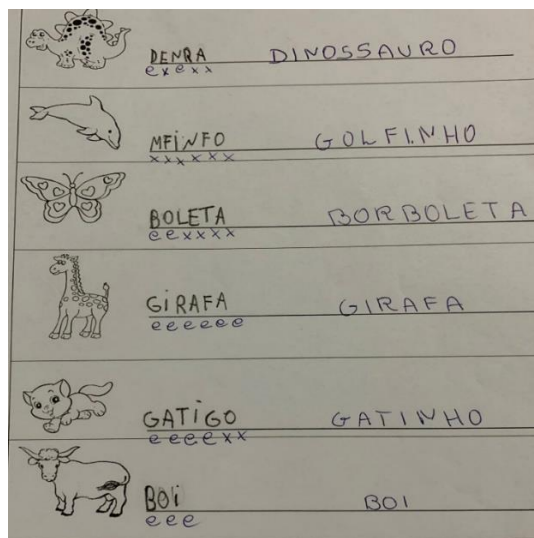 DENRA DINOSSAURO
e x e x x
MFINFO GOLFINHO
x x x x x x
BOLETA BORBOLETA
e e x x x x
GIRAFA GIRAFA
e e e e e e
GATIGO GATINHO
e e e e x x
BOI BOI
e e e